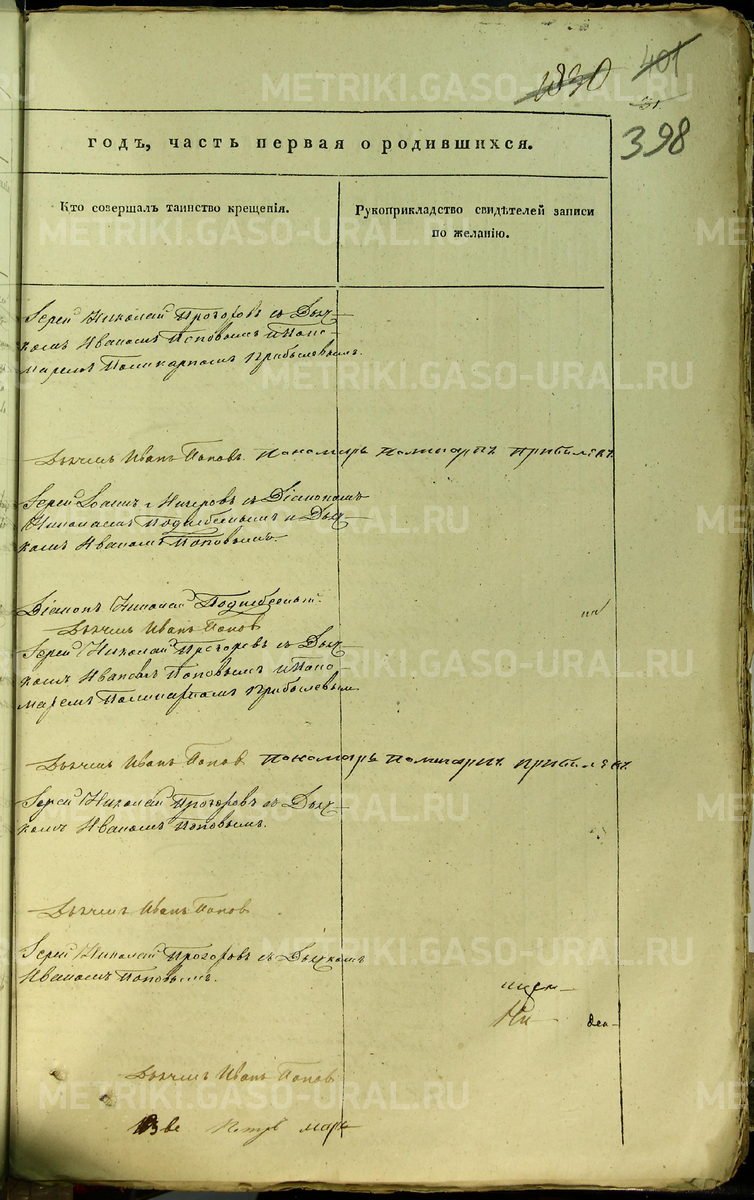 1830
401
398
годъ, часть первая о родившихся.
Кто совершалъ таинство крещенія.
Рукоприкладство свидѣтелей записи
по желанію.
Іерей Николай Прозоровъ съ Дьяч-
комъ Иваномъ Поповымъ и Поно-
маремъ Поликарпомъ Прибылевымъ.
Дьячекъ Иванъ Поповъ. Пономарь Поликарпъ Прибылевъ.
Іерей с Діакономъ
Николаемъ и Дьяч-
комъ Иваномъ Поповымъ.
Діаконъ Николай
Дьячекъ Иванъ Поповъ
Іерей Николай Прозоровъ съ Дьяч-
комъ Иваномъ Поповымъ и Поно-
маремъ Поликарпомъ Прибылевым
Дьячекъ Иванъ Поповъ Пономарь Поликарпъ Прибылевъ
Іерей Николай Прозоровъ съ Дьяч-
комъ Иваномъ Поповымъ.
Дьячекъ Иванъ Поповъ
Іерей Николай Прозоровъ съ Дьячкомъ
Иваномъ Поповымъ.
Ни-
Дьячекъ Иванъ Поповъ
Петръ
METRIKI.GASO-URAL.RU